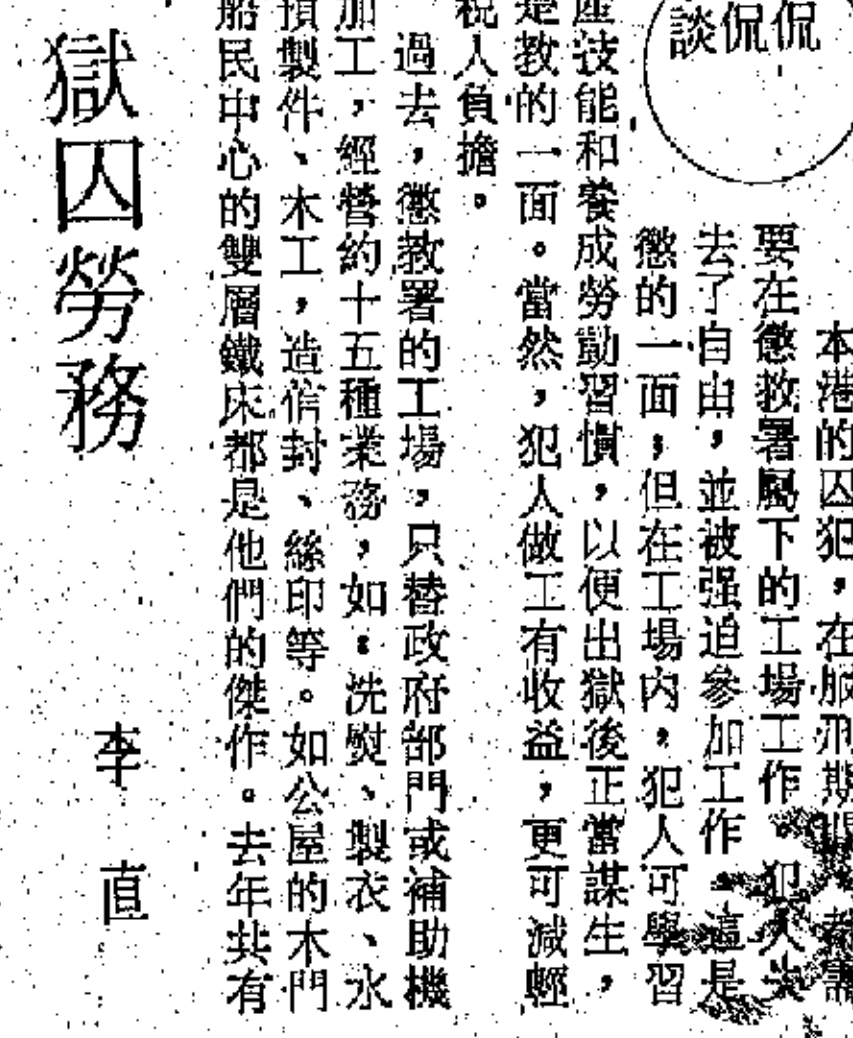 侃侃談
本港的囚犯，在服刑期間，都需
要在懲教署屬下的工場工作。犯人失
去了自由，並被强迫參加工作，這是
懲的一面；但在工場內，犯人可學習
產技能和養成勞動習慣，以便出獄後正當謀生，
是教的一面。當然，犯人做工有收益，更可減輕
稅人負擔。
過去，懲教署的工場，只替政府部門或補助機
加工，經營約十五種業務，如：洗熨、製衣、水
預製件、木工，造信封、絲印等。如公屋的木門
船民中心的雙層鐵床都是他們的傑作。去年共有
獄囚勞務
李直